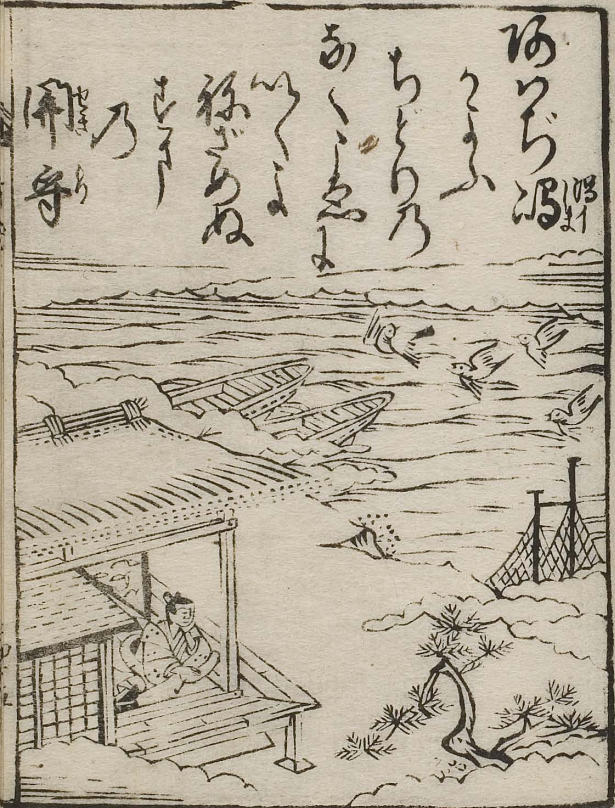 阿はぢ嶋
かよふ
ちどり乃
なくこゑに
いくよ
ねざめぬ
すま
乃
関守
せきもり